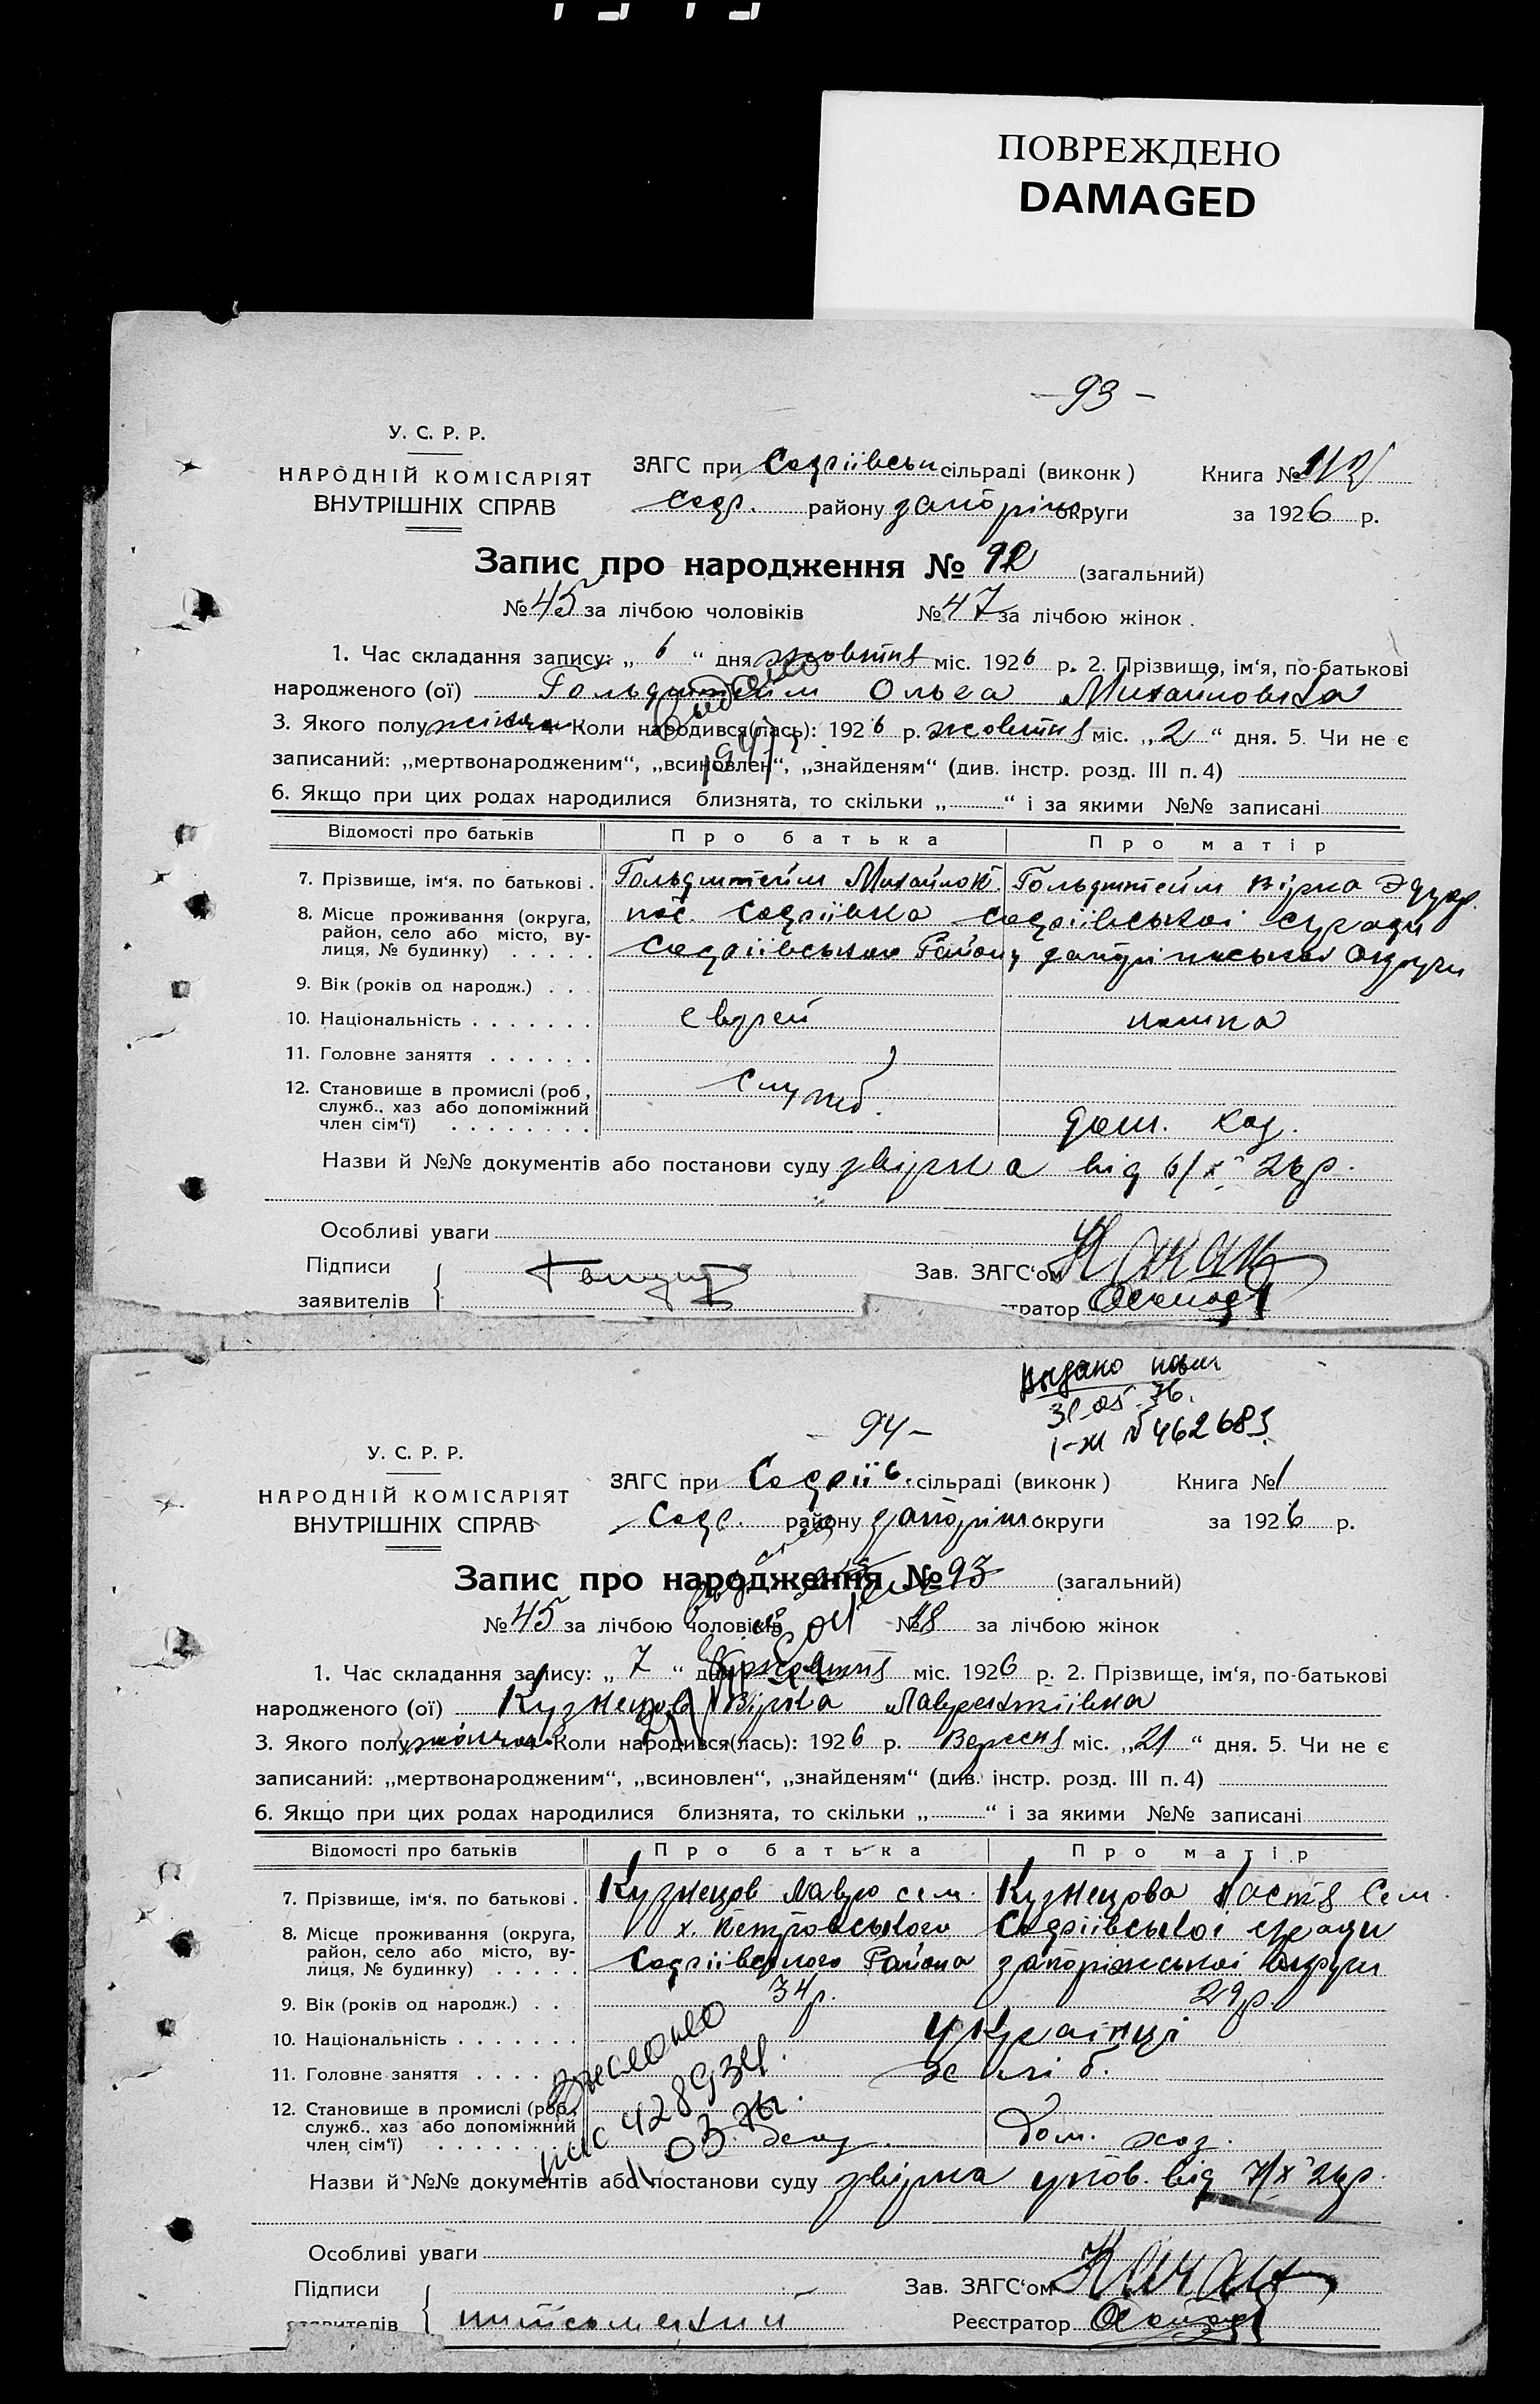 ПОВРЕЖДЕНО
DAMAGED
— 93 —
У. С. Р. Р.
НАРОДНІЙ КОМІСАРІЯТ
ВНУТРІШНІХ СПРАВ
ЗАГС при Софіївськ сільраді (виконк )
Соф. району Запоріж округи
Книга №
за 1926 р.
Запис про народження № 92 (загальний)
№ 45 за лічбою чоловіків № 47 за лічбою жінок
1. Час складання запису: „ 6 “ дня жовтня міс. 1926 р. 2. Прізвище, ім‘я, по-батькові
народженого (ої) Гольдштейн Ольга Михайловна
3. Якого полу жіноч Коли народився(лась): 1926 р. жовтня міс. „ 2 “ дня. 5. Чи не є
записаний: „мертвонародженим“, „всиновлен“, „знайденям“ (див. інстр. розд. III п. 4)
6. Якщо при цих родах народилися близнята, то скільки „ “ і за якими №№ записані
Відомості про батьків Про батька Про матір
7. Прізвище, ім‘я. по батькові . Гольдштейн Михайло Гольдштейн Вірка Эдуар.
8. Місце проживання (округа, район, село або місто, вулиця, № будинку) пос. Софіївка Софіївської с/ради
Софіївського Району Запоріжської Округи
9. Вік (років од народж.)
10. Національність еврей
11. Головне заняття
12. Становище в промислі (роб, служб.. хаз або допоміжний член сім‘ї) служб. дом. хоз.
Назви й №№ документів або постанови суду звірка від 6/X 26р.
Особливі уваги
Підписи
заявителів
Зав. ЗАГС‘ом
тратор
Выдано повт
31.05.76.
I-ЖИ № 462683
— 94 —
У. С. Р. Р.
НАРОДНІЙ КОМІСАРІЯТ
ВНУТРІШНІХ СПРАВ
ЗАГС при Софіїв. сільраді (виконк )
Соф. району Запоріж округи
Книга № 1
за 1926 р.
Запис про народження № 93 (загальний)
№ 45 за лічбою чоловіків № 48 за лічбою жінок
1. Час складання запису: „ 7 “ дня жовтня міс. 1926 р. 2. Прізвище, ім‘я, по-батькові
народженого (ої) Кузнецов Вірка Лаврентіївна
3. Якого полу жіноч Коли народився(лась): 1926 р. Вересня міс. „ 21 “ дня. 5. Чи не є
записаний: „мертвонародженим“, „всиновлен“, „знайденям“ (див. інстр. розд. III п. 4)
6. Якщо при цих родах народилися близнята, то скільки „ “ і за якими №№ записані
Відомості про батьків Про батька Про матір
7. Прізвище, ім‘я. по батькові . Кузнецов Лавро сем. Кузнецова Настя Сем.
8. Місце проживання (округа, район, село або місто, вулиця, № будинку) х. Петровського Софіївської с/ради
Софіївського Района Запоріжської Округи
9. Вік (років од народж.) 34р. 29р.
10. Національність Українці
11. Головне заняття хліб.
12. Становище в промислі (роб, служб.. хаз або допоміжний член сім‘ї) Дом. хоз.
Назви й №№ документів або постанови суду звірка упов. від 7/X 26р.
Особливі уваги
Підписи
заявителів неписьменний
Зав. ЗАГС‘ом
Реєстратор